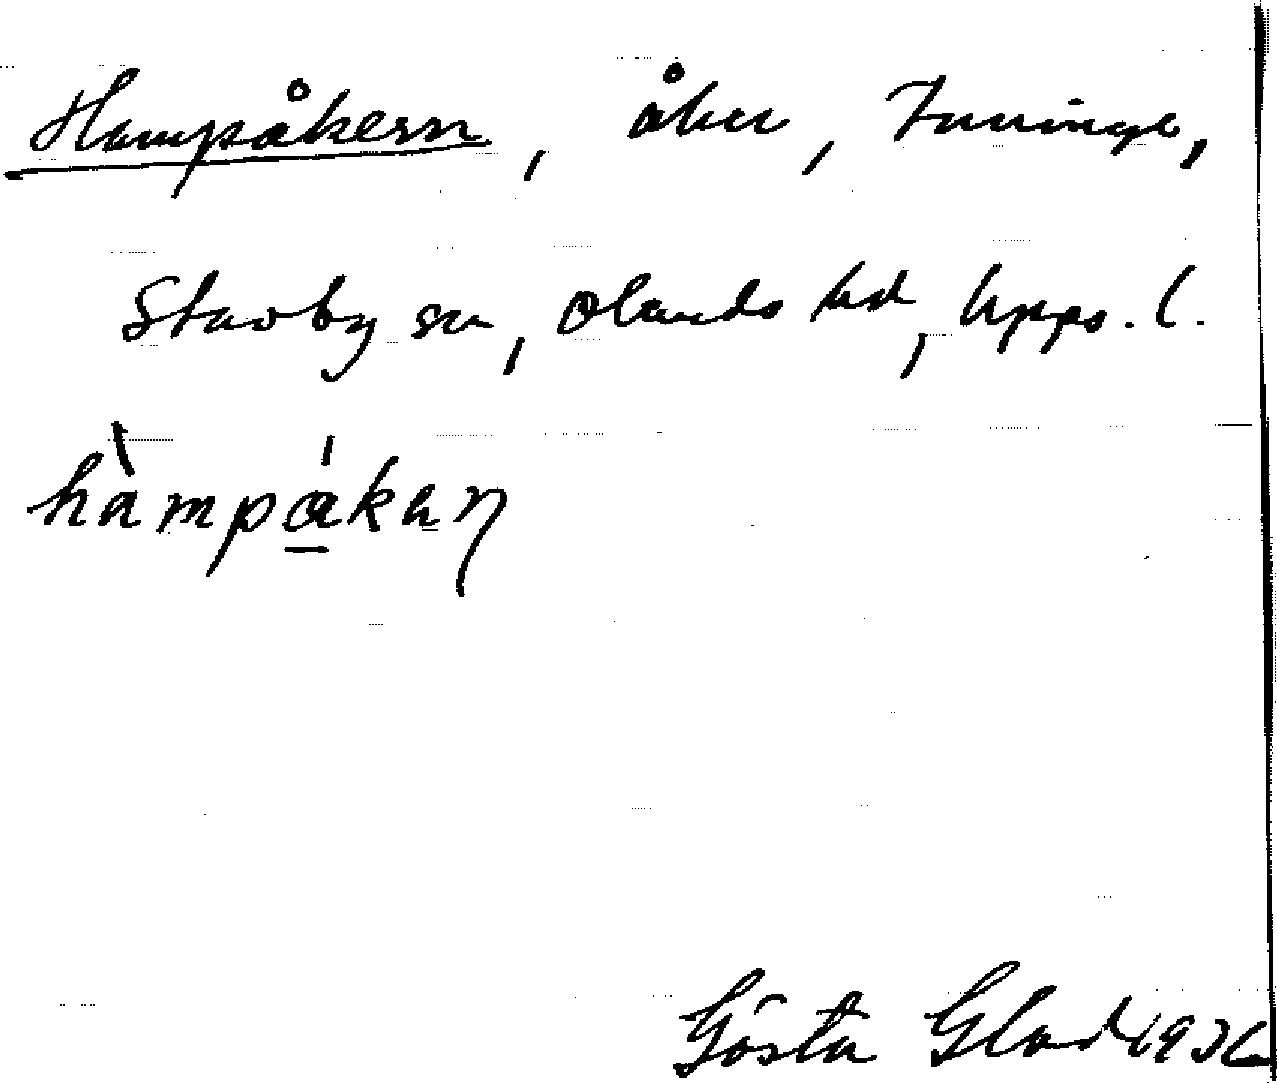 Hampåkern, åker, Tuvinge,
Stavby sn, Olands hd, Upps. l.
hàmpákaɳ
Gösta Glad 1936